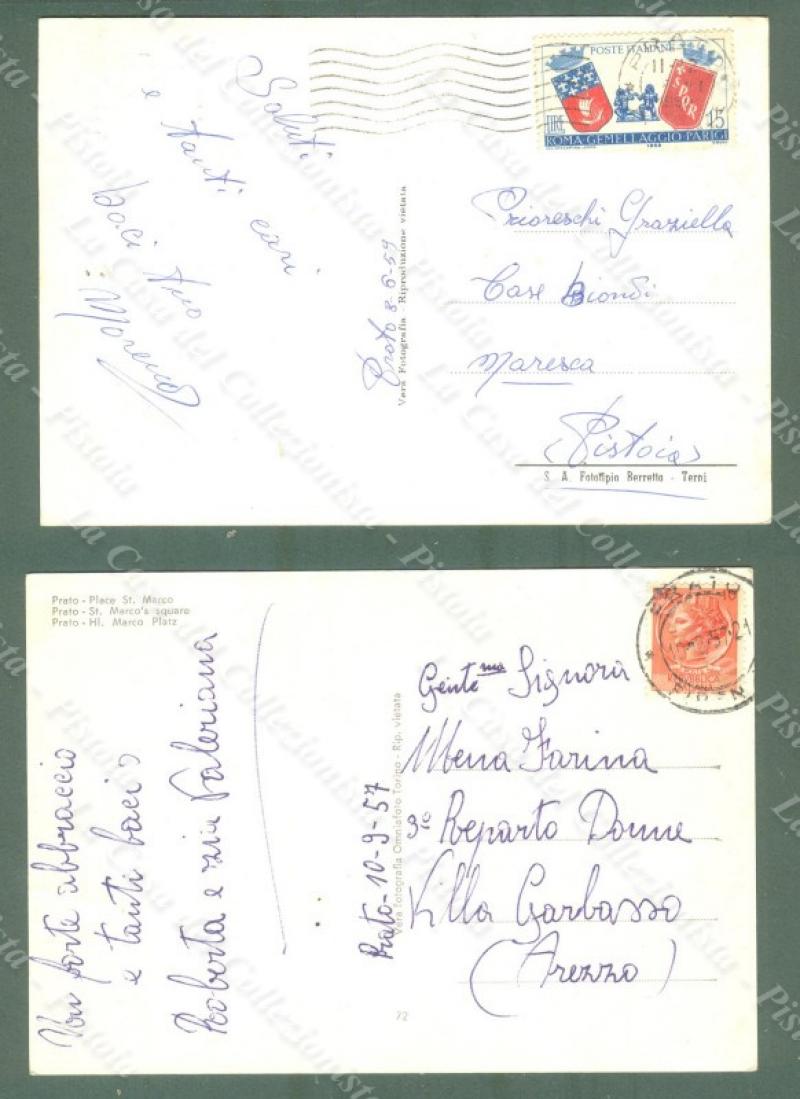 Saluti
e tanti cari
baci tuo
POSTE ITALIANE
SPQR
LIRE 15
ROMA·GEMELLAGGIO·PARIGI
Prato 8-6-59
Vera Fotografia - Riproduzione vietata
Prioreschi Graziella
Case Biondi
Maresca
(Pistoia)
S. A. Fotottipia Berretta - Terni
Prato - Place St. Marco
Prato - St. Marco's square
Prato - Hl. Marco Platz
Un forte abbraccio
e tanti baci
Roberta e zia Valeriana
Prato - 10-9-57
Vera fotografia Omniafoto Torino - Rip. vietata
Gent.ma Signora
Mena Farina
3° Reparto Donne
Villa Garbasso
(Arezzo)
72
La Casa del Collezionista - Pistoia